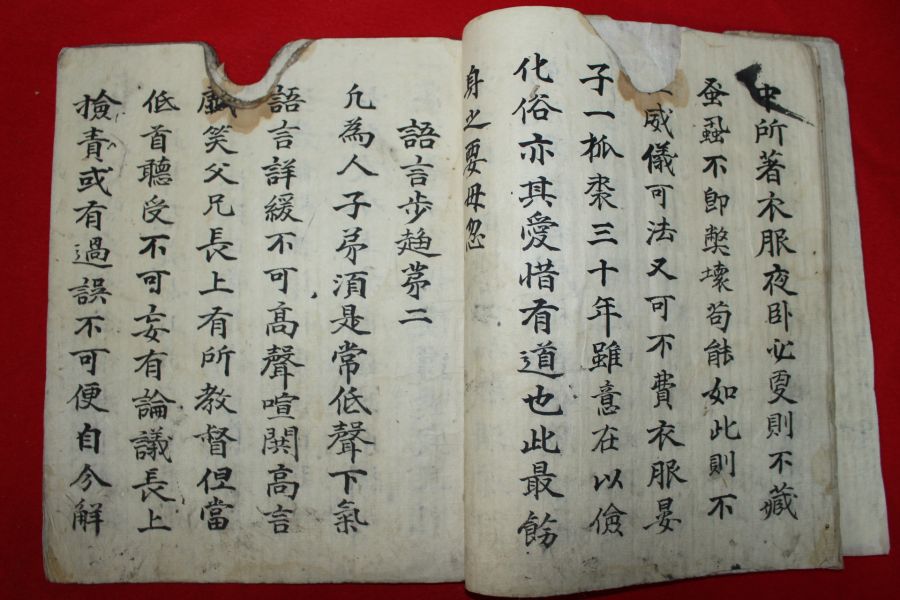 中所著衣服夜卧必更則不藏
蚤蝨不即弊壞苟能如此則不
威儀可法又可不費衣服晏
子一狐裘三十年雖意在以儉
化俗亦其愛惜有道也此最飭
身之要毋忽
語言步趨苐二
凢為人子苐須是常低聲下氣
語言詳緩不可高聲喧鬨高言
戲笑父兄長上有所教督但當
低首聽受不可妄有論議長上
撿責或有過誤不可便自今解